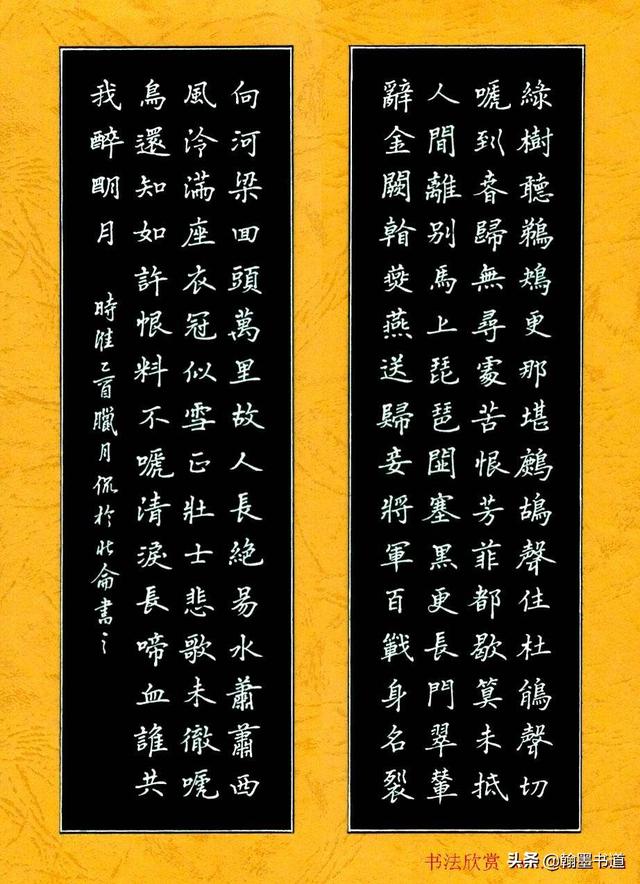 綠樹聽鵜鴂更那堪鷓鴣聲住杜鵑聲切
嗁到春歸無尋處苦恨芳菲都歇算未抵
人間離別馬上琵琶關塞黑更長門翠輦
辭金闕看燕燕送歸妾將軍百戰身名裂
向河梁回頭萬里故人長絕易水蕭蕭西
風冷滿座衣冠似雪正壯士悲歌未徹嗁
鳥還知如許恨料不嗁清淚長啼血誰共
我醉明月
時維乙酉臘月侃於北侖書之
书法欣赏 头条 @翰墨书道